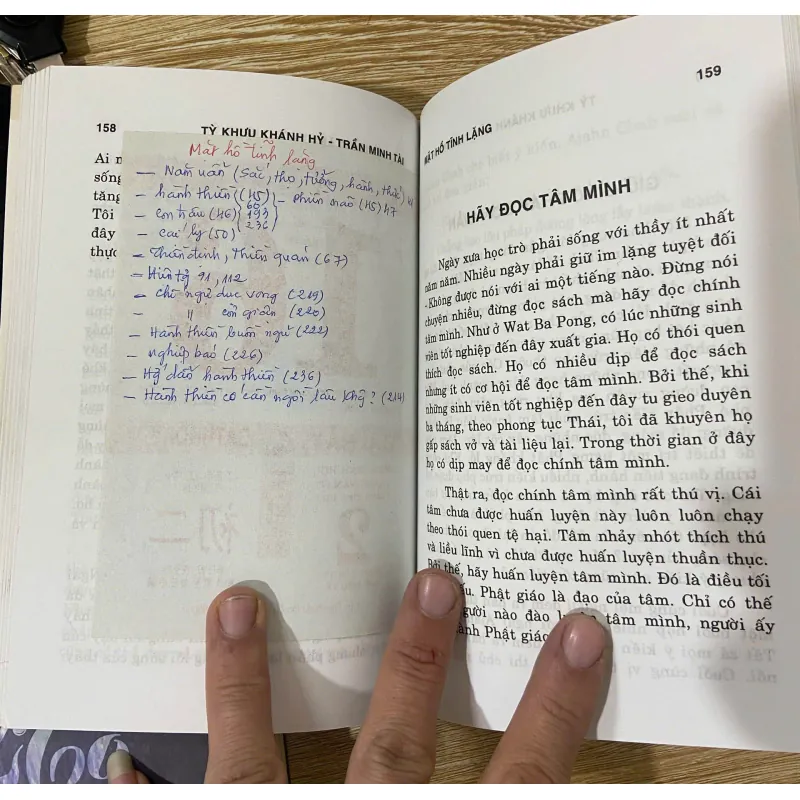 158 TỲ KHƯU KHÁNH HỶ - TRẦN MINH TÀI
Ai
sống
tăng
Tôi
đây
thực
Mặt hồ tĩnh lặng
— Năm uẩn (Sắc, thọ, tưởng, hành, thức)
— hành thiền (45) - phiền não (45) 47
60
— con trâu (46) 193
236
— cai ly (50)
— Thiền định, thiền quán (67)
— Hiện tại 91, 112
— chế ngự dục vọng (219)
— " cơn giận (220)
— Hành thiền buồn ngủ (222)
— nghiệp báo (226)
— Hg dẫn hành thiền (236)
— Hành thiền có cần ngồi lâu khg? (214)
初二
MẶT HỒ TĨNH LẶNG 159
HÃY ĐỌC TÂM MÌNH
Ngày xưa học trò phải sống với thầy ít nhất
năm năm. Nhiều ngày phải giữ im lặng tuyệt đối
- Không được nói với ai một tiếng nào. Đừng nói
chuyện nhiều, đừng đọc sách mà hãy đọc chính
tâm mình. Như ở Wat Ba Pong, có lúc những sinh
viên tốt nghiệp đến đây xuất gia. Họ có thói quen
thích đọc sách. Họ có nhiều dịp để đọc sách
nhưng ít có cơ hội để đọc tâm mình. Bởi thế, khi
những sinh viên tốt nghiệp đến đây tu gieo duyên
ba tháng, theo phong tục Thái, tôi đã khuyên họ
gấp sách vở và tài liệu lại. Trong thời gian ở đây
họ có dịp may để đọc chính tâm mình.
Thật ra, đọc chính tâm mình rất thú vị. Cái
tâm chưa được huấn luyện này luôn luôn chạy
theo thói quen tệ hại. Tâm nhảy nhót thích thú
và liều lĩnh vì chưa được huấn luyện thuần thục.
Bởi thế, hãy huấn luyện tâm mình. Đó là điều tối
Phật giáo là đạo của tâm. Chỉ có thế
người nào đào tâm mình, người ấy
Phật giáo